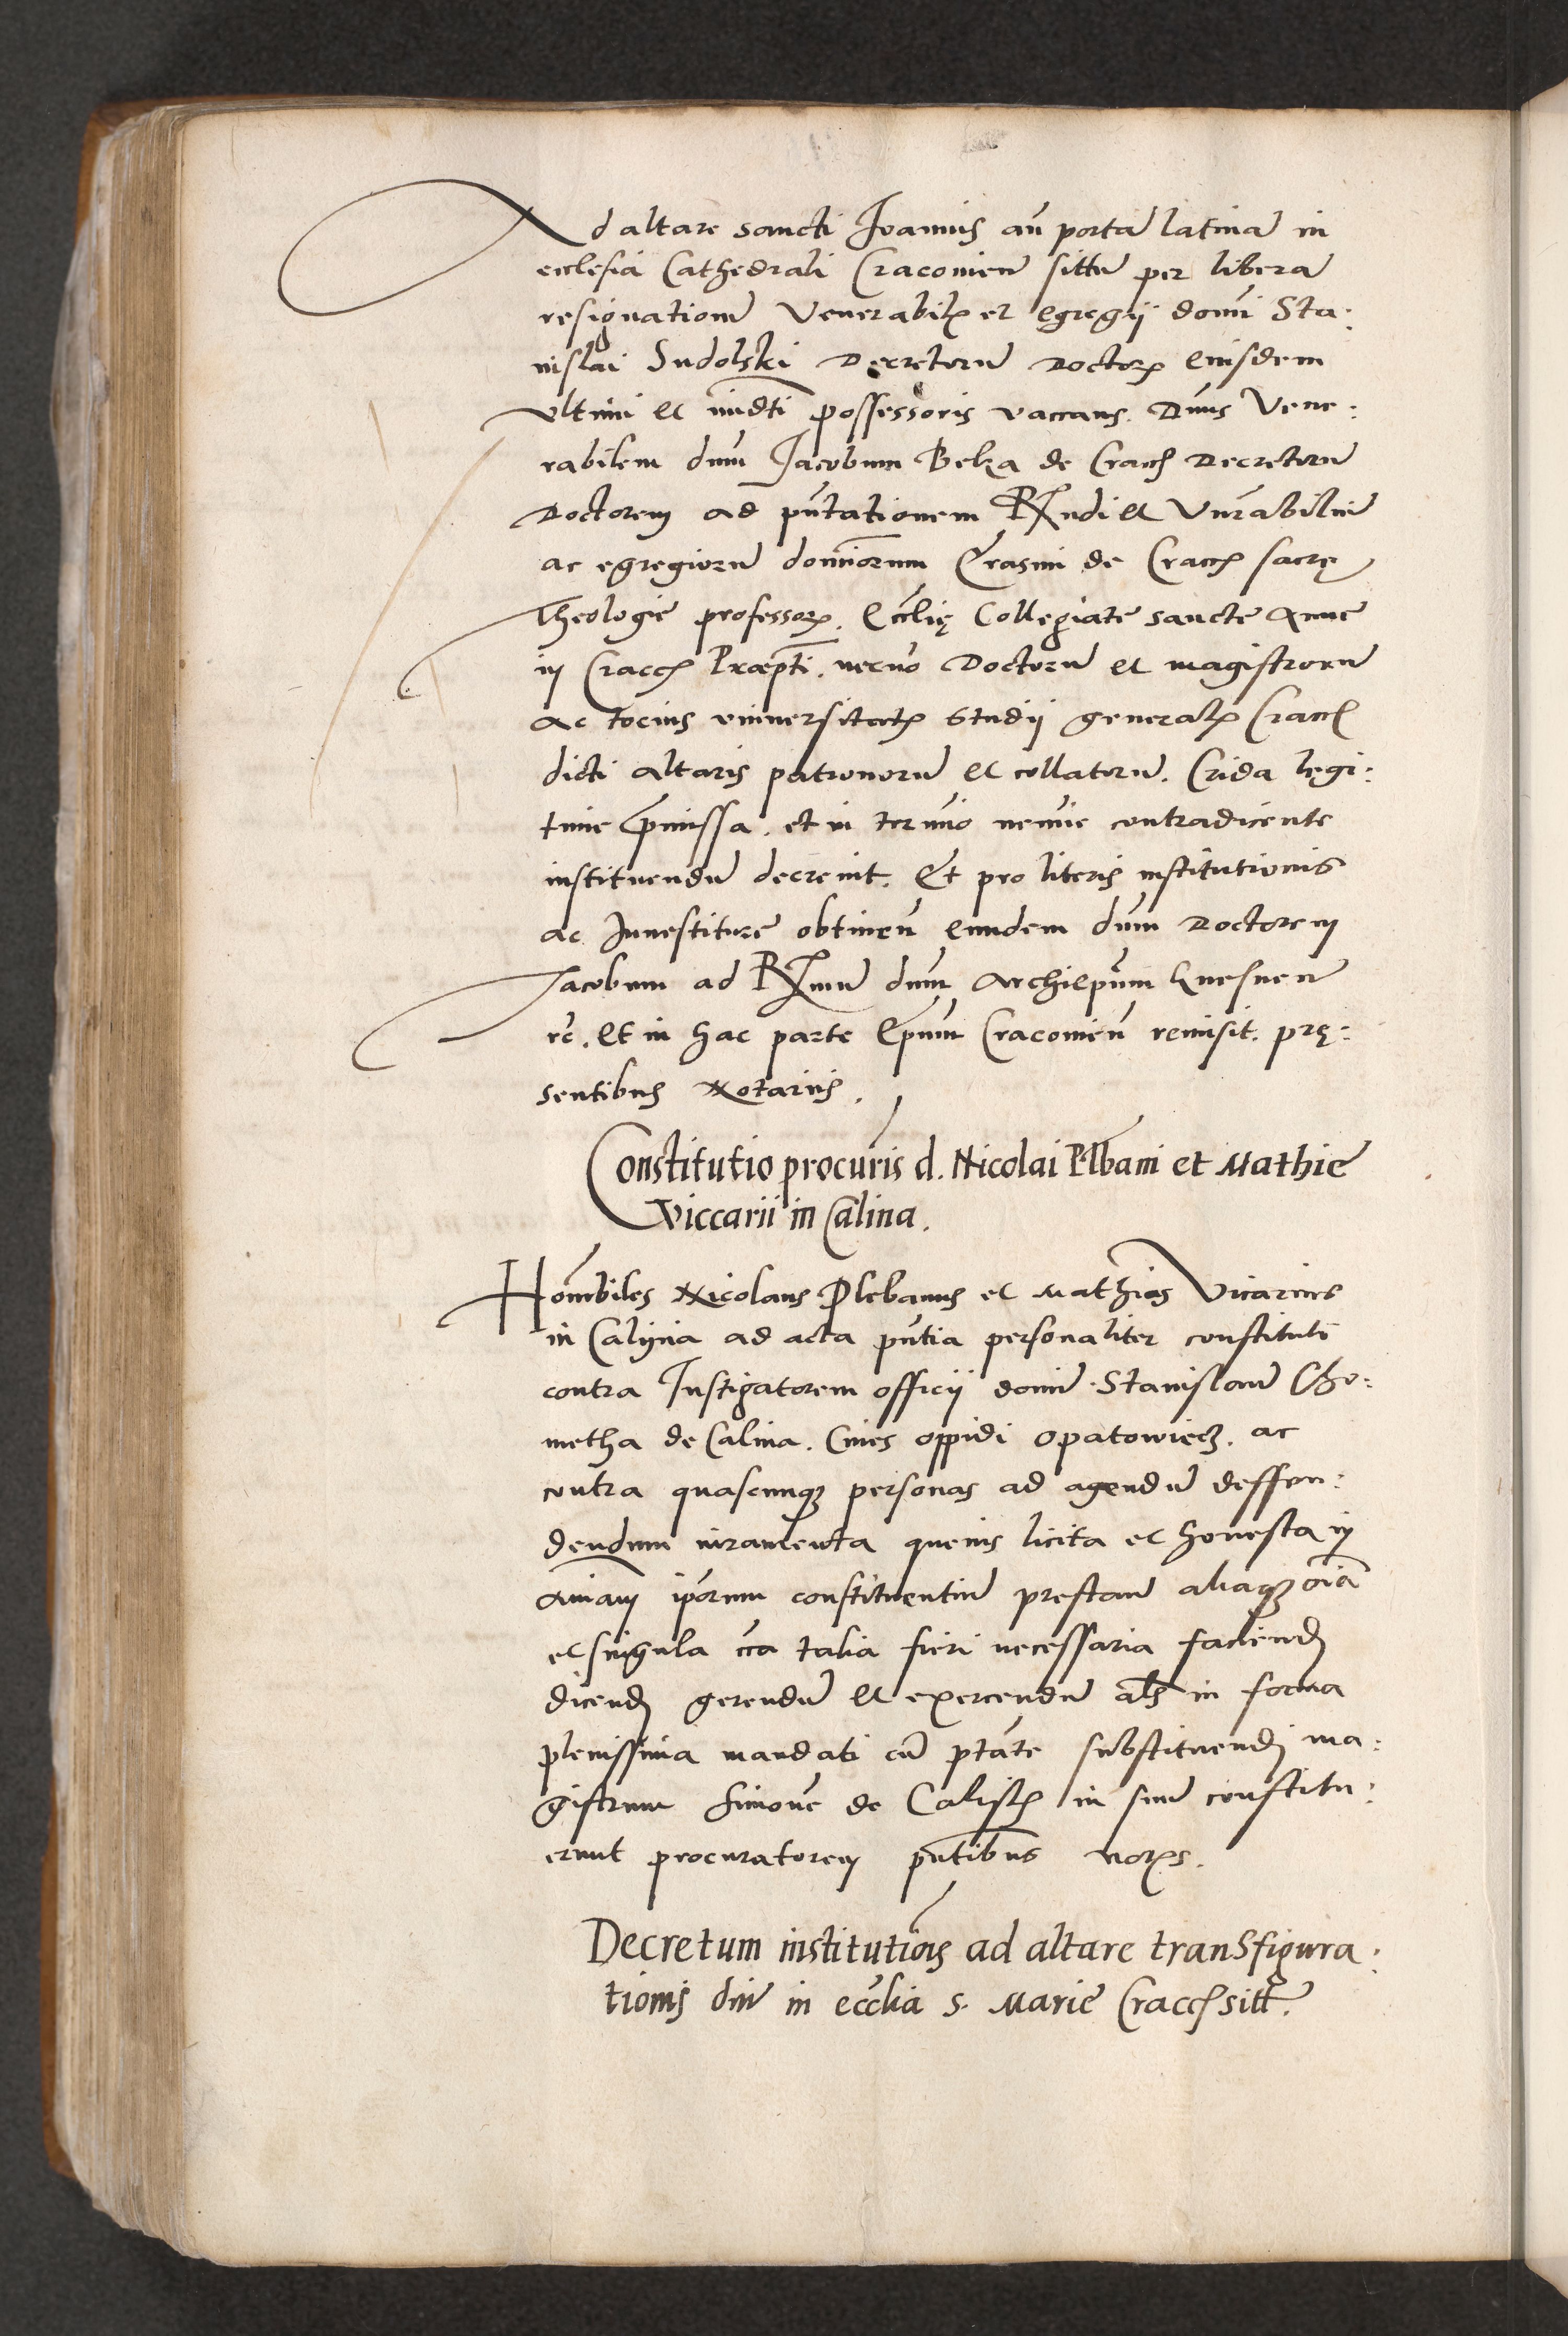 Ad altare sancti Joannis añ portã latinã in
ecclesia Cathedrali Cracovieñ sittũ per liberã
resignationẽ Venerabilꝭ et Egregii domĩ Sta:
nislai Sudolski Decretorũ Doctorꝭ Eiusdem
ultimi et imẽdti possessoris vaccans. Dñus Vene:
rabilem dnũm Jacobum Belza de Cracꝭ Decretorũ
Doctorem ad pñtationem Rñdi et Vnrabiliũ
ac egregiorũ domĩorum Erasmi de Cracꝭ sacrę
Theologie professorꝭ. Ecclię Collegiate sancte Anne
in Cracꝭ Præpti. necño Doctorũ et magistrorũ
ac tocius universitatꝭ studii generalꝭ Cracꝭ
dicti altaris patronorũ et collatorũ. Crida legi:
time p̃missa. et in termĩo nemĩe contradicente
instituendũ decrevit. Et pro literis institutionis
ac Investiture obtineñ Eundem dnũm Doctorem
Jacobum ad Rmũ dnũm Archiep̃um Gnesneñ
rc̃. Et in hac parte Ep̃um Cracovieñ remisit. prę:
sentibus Notariis.
Constitutio procuris d. Nicolai Plbani et Mathie
Viccarii in Calina.
Honõbiles Nicolaus Plebanus et Mathias Vicarius
in Calina ad acta pñtia personaliter constituti
contra Instigatorem officii domĩ Stanislaũ Cho:
metha de Calina. Cives oppidi Opatowiecz. ac
contra quascunqꝫ personas ad agendũ deffen:
dendum iuramenta quevis licita et honesta in
animam ip̃orum constituentiũ prestanđ aliaqꝫ oĩa
et singula cca talia fieri necessaria faciendꝭ
dicendꝭ gerendũ et exercendũ als in forma
plenissima mandati cũ ptãte substituendi ma:
gistrum Simonẽ de Calisꝭ in suũ constitu:
erunt procuratorem pñtibus norꝭs.
Decretum institutiõis ad altare transfigura:
tionis dñi in eccłia s. Marie Cracꝭ sitt.